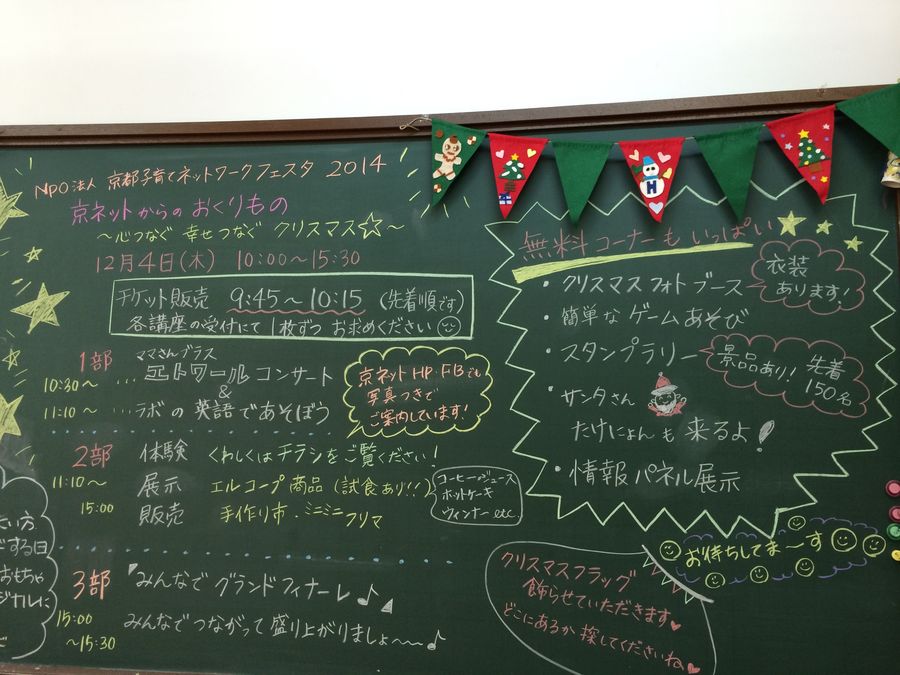 NPO法人 京都子育てネットワークフェスタ 2014
京ネットからの おくりもの
〜心つなぐ 幸せつなぐ クリスマス☆〜
12月4日(木) 10:00〜15:30
チケット販売 9:45〜10:15 (先着順です)
各講座の受付にて1枚ずつ お求めください
1部
ママさんブラス
10:30〜 … エトワール コンサート
&
11:10〜 … ラボの英語であそぼう
京ネットHP・FBでも
写真つきで
ご案内しています!
2部 体験 くわしくは チラシをご覧ください!
11:10〜 展示 エルコープ商品(試食あり!!)
15:00 販売 手作り市・ミニミニフリマ
コーヒー・ジュース
ホットケーキ
ウィンナー etc
3部 『みんなで グランドフィナーレ♪』
15:00 みんなで つながって 盛り上がりましょ〜〜♪
〜15:30
無料コーナーも いっぱい
・クリスマスフォト ブース
衣装
あります!
・簡単な ゲームあそび
・スタンプラリー
景品あり! 先着
150名
・サンタさん
たけにょんも 来るよ!
・情報パネル展示
お待ちしてま〜す
クリスマスフラッグ
飾らせていただきます♥
どこにあるか 探してくださいね♥
たい方
する日
おもちゃ
ジカルに
H